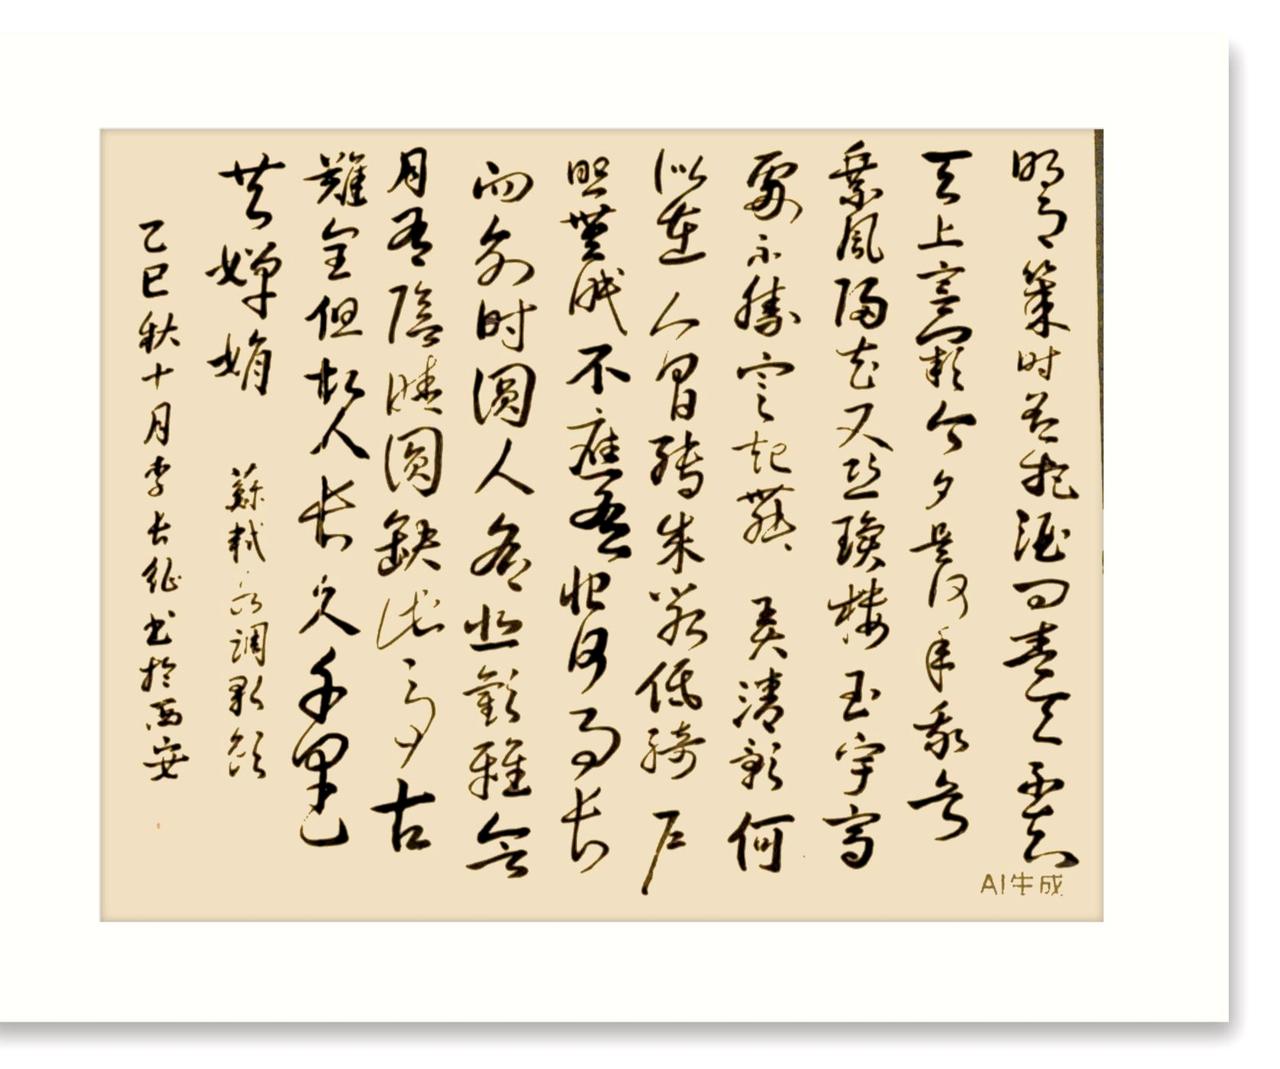 明月幾时有把酒问青天不知
天上宫闕今夕是何年我欲
乘风归去又恐瓊樓玉宇高
處不勝寒起舞弄清影何
似在人间轉朱阁低绮户
照無眠不應有恨何事长
向别时圆人有悲歡離合
月有陰晴圆缺此事古
難全但愿人长久千里
共嬋娟
蘇軾水调歌頭
乙巳秋十月李长征书於西安
AI生成